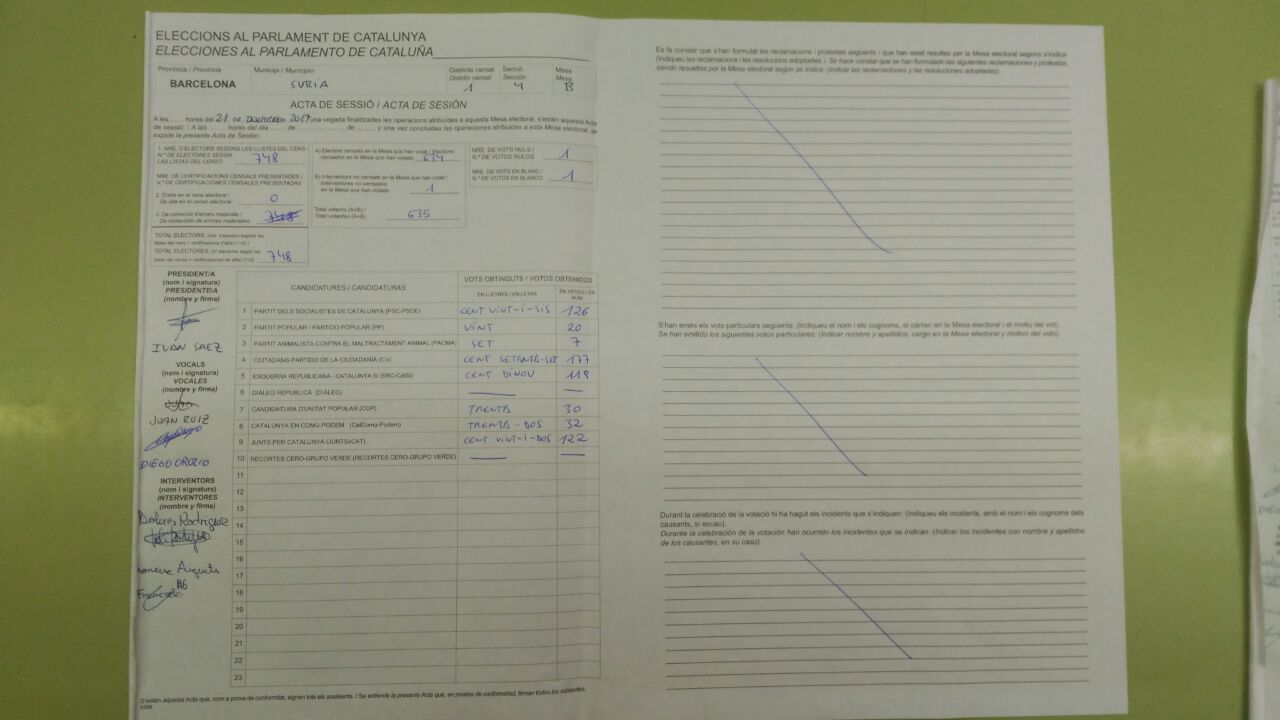 ELECCIONS AL PARLAMENT DE CATALUNYA
ELECCIONES AL PARLAMENTO DE CATALUÑA
Província / Provincia
Municipi / Municipio
Districte censal
Distrito censal
Secció
Sección
Mesa
Mesa
BARCELONA
SURIA
1
4
B
ACTA DE SESSIÓ / ACTA DE SESIÓN
A les ..... hores del 21 de Desembre de 2017 una vegada finalitzades les operacions atribuïdes a aquesta Mesa electoral, s'estén aquesta Acta
de sessió. / A las ..... horas del día ..... de ..... de ..... y una vez concluidas las operaciones atribuidas a esta Mesa electoral, se
expide la presente Acta de Sesión.
1. NRE. D'ELECTORS SEGONS LES LLISTES DEL CENS
N.º DE ELECTORES SEGÚN
LAS LISTAS DEL CENSO
748
NRE. DE CERTIFICACIONS CENSALS PRESENTADES /
N.º DE CERTIFICACIONES CENSALES PRESENTADAS
2. D'alta en el cens electoral /
De alta en el censo electoral:
0
3. De correcció d'errors materials /
De corrección de errores materiales:
TOTAL ELECTORS: (nre. d'electors segons les
llistes del cens + certificacions d'alta) (1+2) /
TOTAL ELECTORES: (nº electores según las
listas del censo + certificaciones de alta) (1+2)
748
A) Electors censats en la Mesa que han votat / Electores
censados en la Mesa que han votado
634
B) Interventors no censats en la Mesa que han votat /
Interventores no censados
en la Mesa que han votado
1
Total votants (A+B) /
Total votantes (A+B)
635
NRE. DE VOTS NULS /
N.º DE VOTOS NULOS
1
NRE. DE VOTS EN BLANC /
N.º DE VOTOS EN BLANCO
1
PRESIDENT/A
(nom i signatura)
PRESIDENTE/A
(nombre y firma)
IVAN SAEZ
VOCALS
(nom i signatura)
VOCALES
(nombre y firma)
JUAN RUIZ
DIEGO OROZIO
INTERVENTORS
(nom i signatura)
INTERVENTORES
(nombre y firma)
Dolores Rodriguez
CANDIDATURES / CANDIDATURAS
VOTS OBTINGUTS / VOTOS OBTENIDOS
EN LLETRES / EN LETRA
EN XIFRES / EN
NÚM
1 PARTIT DELS SOCIALISTES DE CATALUNYA (PSC-PSOE) CENT VINT-I-SIS 126
2 PARTIT POPULAR / PARTIDO POPULAR (PP) VINT 20
3 PARTIT ANIMALISTA CONTRA EL MALTRACTAMENT ANIMAL (PACMA) SET 7
4 CIUTADANS-PARTIDO DE LA CIUDADANÍA (C's) CENT SETANTA-SET 177
5 ESQUERRA REPUBLICANA - CATALUNYA SÍ (ERC-CatSí) CENT DINOU 119
6 DIÀLEG REPUBLICÀ (DIÀLEG)
7 CANDIDATURA D'UNITAT POPULAR (CUP) TRENTA 30
8 CATALUNYA EN COMÚ-PODEM (CatComú-Podem) TRENTA-DOS 32
9 JUNTS PER CATALUNYA (JUNTSxCAT) CENT VINT-I-DOS 122
10 RECORTES CERO-GRUPO VERDE (RECORTES CERO-GRUPO VERDE)
11
12
13
14
15
16
17
18
19
20
21
22
23
S'estén aquesta Acta que, com a prova de conformitat, signen tots els assistents. / Se extiende la presente Acta que, en prueba de conformidad, firman todos los asistentes.
Es fa constar que s'han formulat les reclamacions i protestes següents i que han estat resoltes per la Mesa electoral segons s'indica:
(Indiqueu les reclamacions i les resolucions adoptades). Se hace constar que se han formulado las siguientes reclamaciones y protestas,
siendo resueltas por la Mesa electoral según se indica: (Indicar las reclamaciones y las resoluciones adoptadas).
S'han emès els vots particulars següents: (Indiqueu el nom i els cognoms, el càrrec en la Mesa electoral i el motiu del vot).
Se han emitido los siguientes votos particulares: (Indicar nombre y apellidos, cargo en la Mesa electoral y motivo del voto)
Durant la celebració de la votació hi ha hagut els incidents que s'indiquen: (Indiqueu els incidents, amb el nom i els cognoms dels
causants, si escau).
Durante la celebración de la votación han ocurrido los incidentes que se indican: (Indicar los incidentes con nombre y apellidos
de los causantes, en su caso).